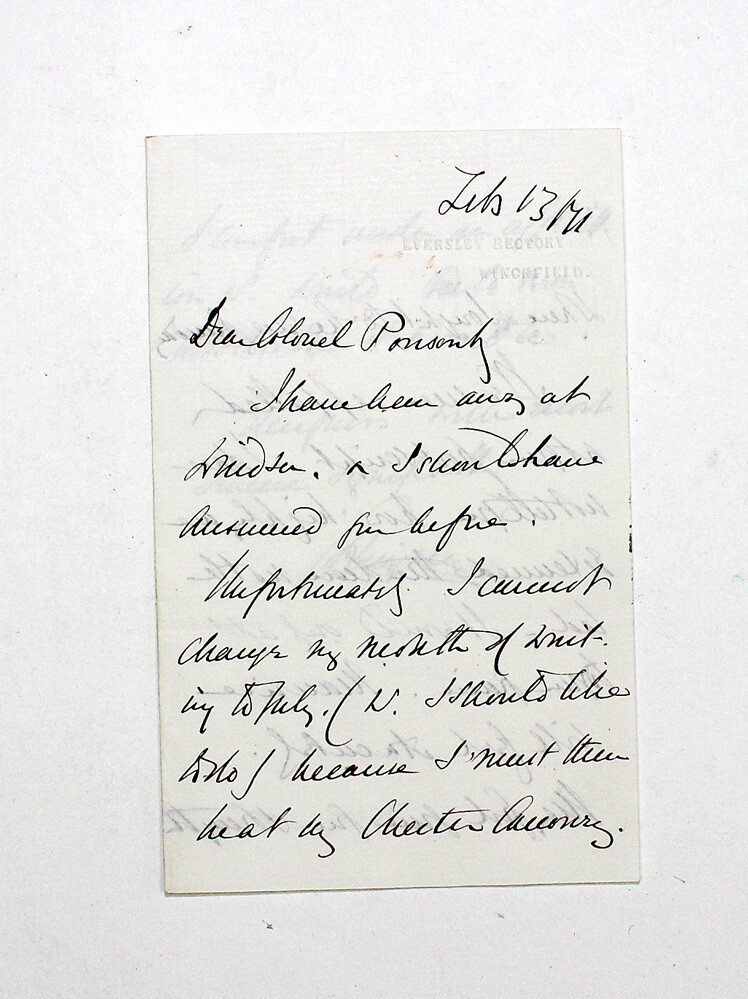 Feb 13/71
EVERSLEY RECTORY
WINCHFIELD.
Dear Colonel Ponsonby
I have been away at
Windsor. or I should have
answered you before.
Unfortunately I cannot
change my month of wait-
ing to July. ( I should like
to do) because I must then
be at my Chester Canonry.